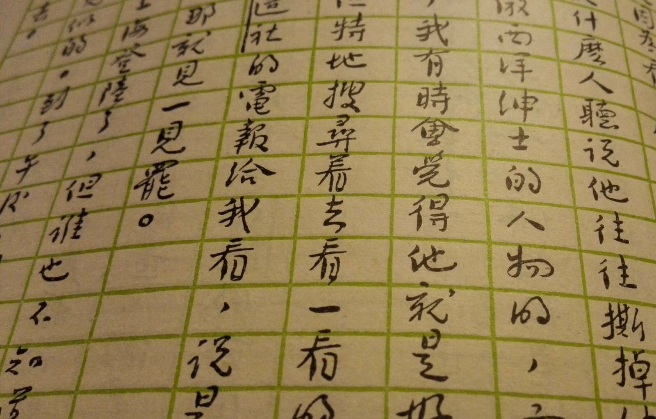 什麼人聽说他往往撕掉
做西洋绅士的人物的，
我有時會覺得他就是
特地搜尋着去看一看的
社的電報给我看，说是
耶就見一見罷。
上海登陸了，但谁也不知
的。到了午